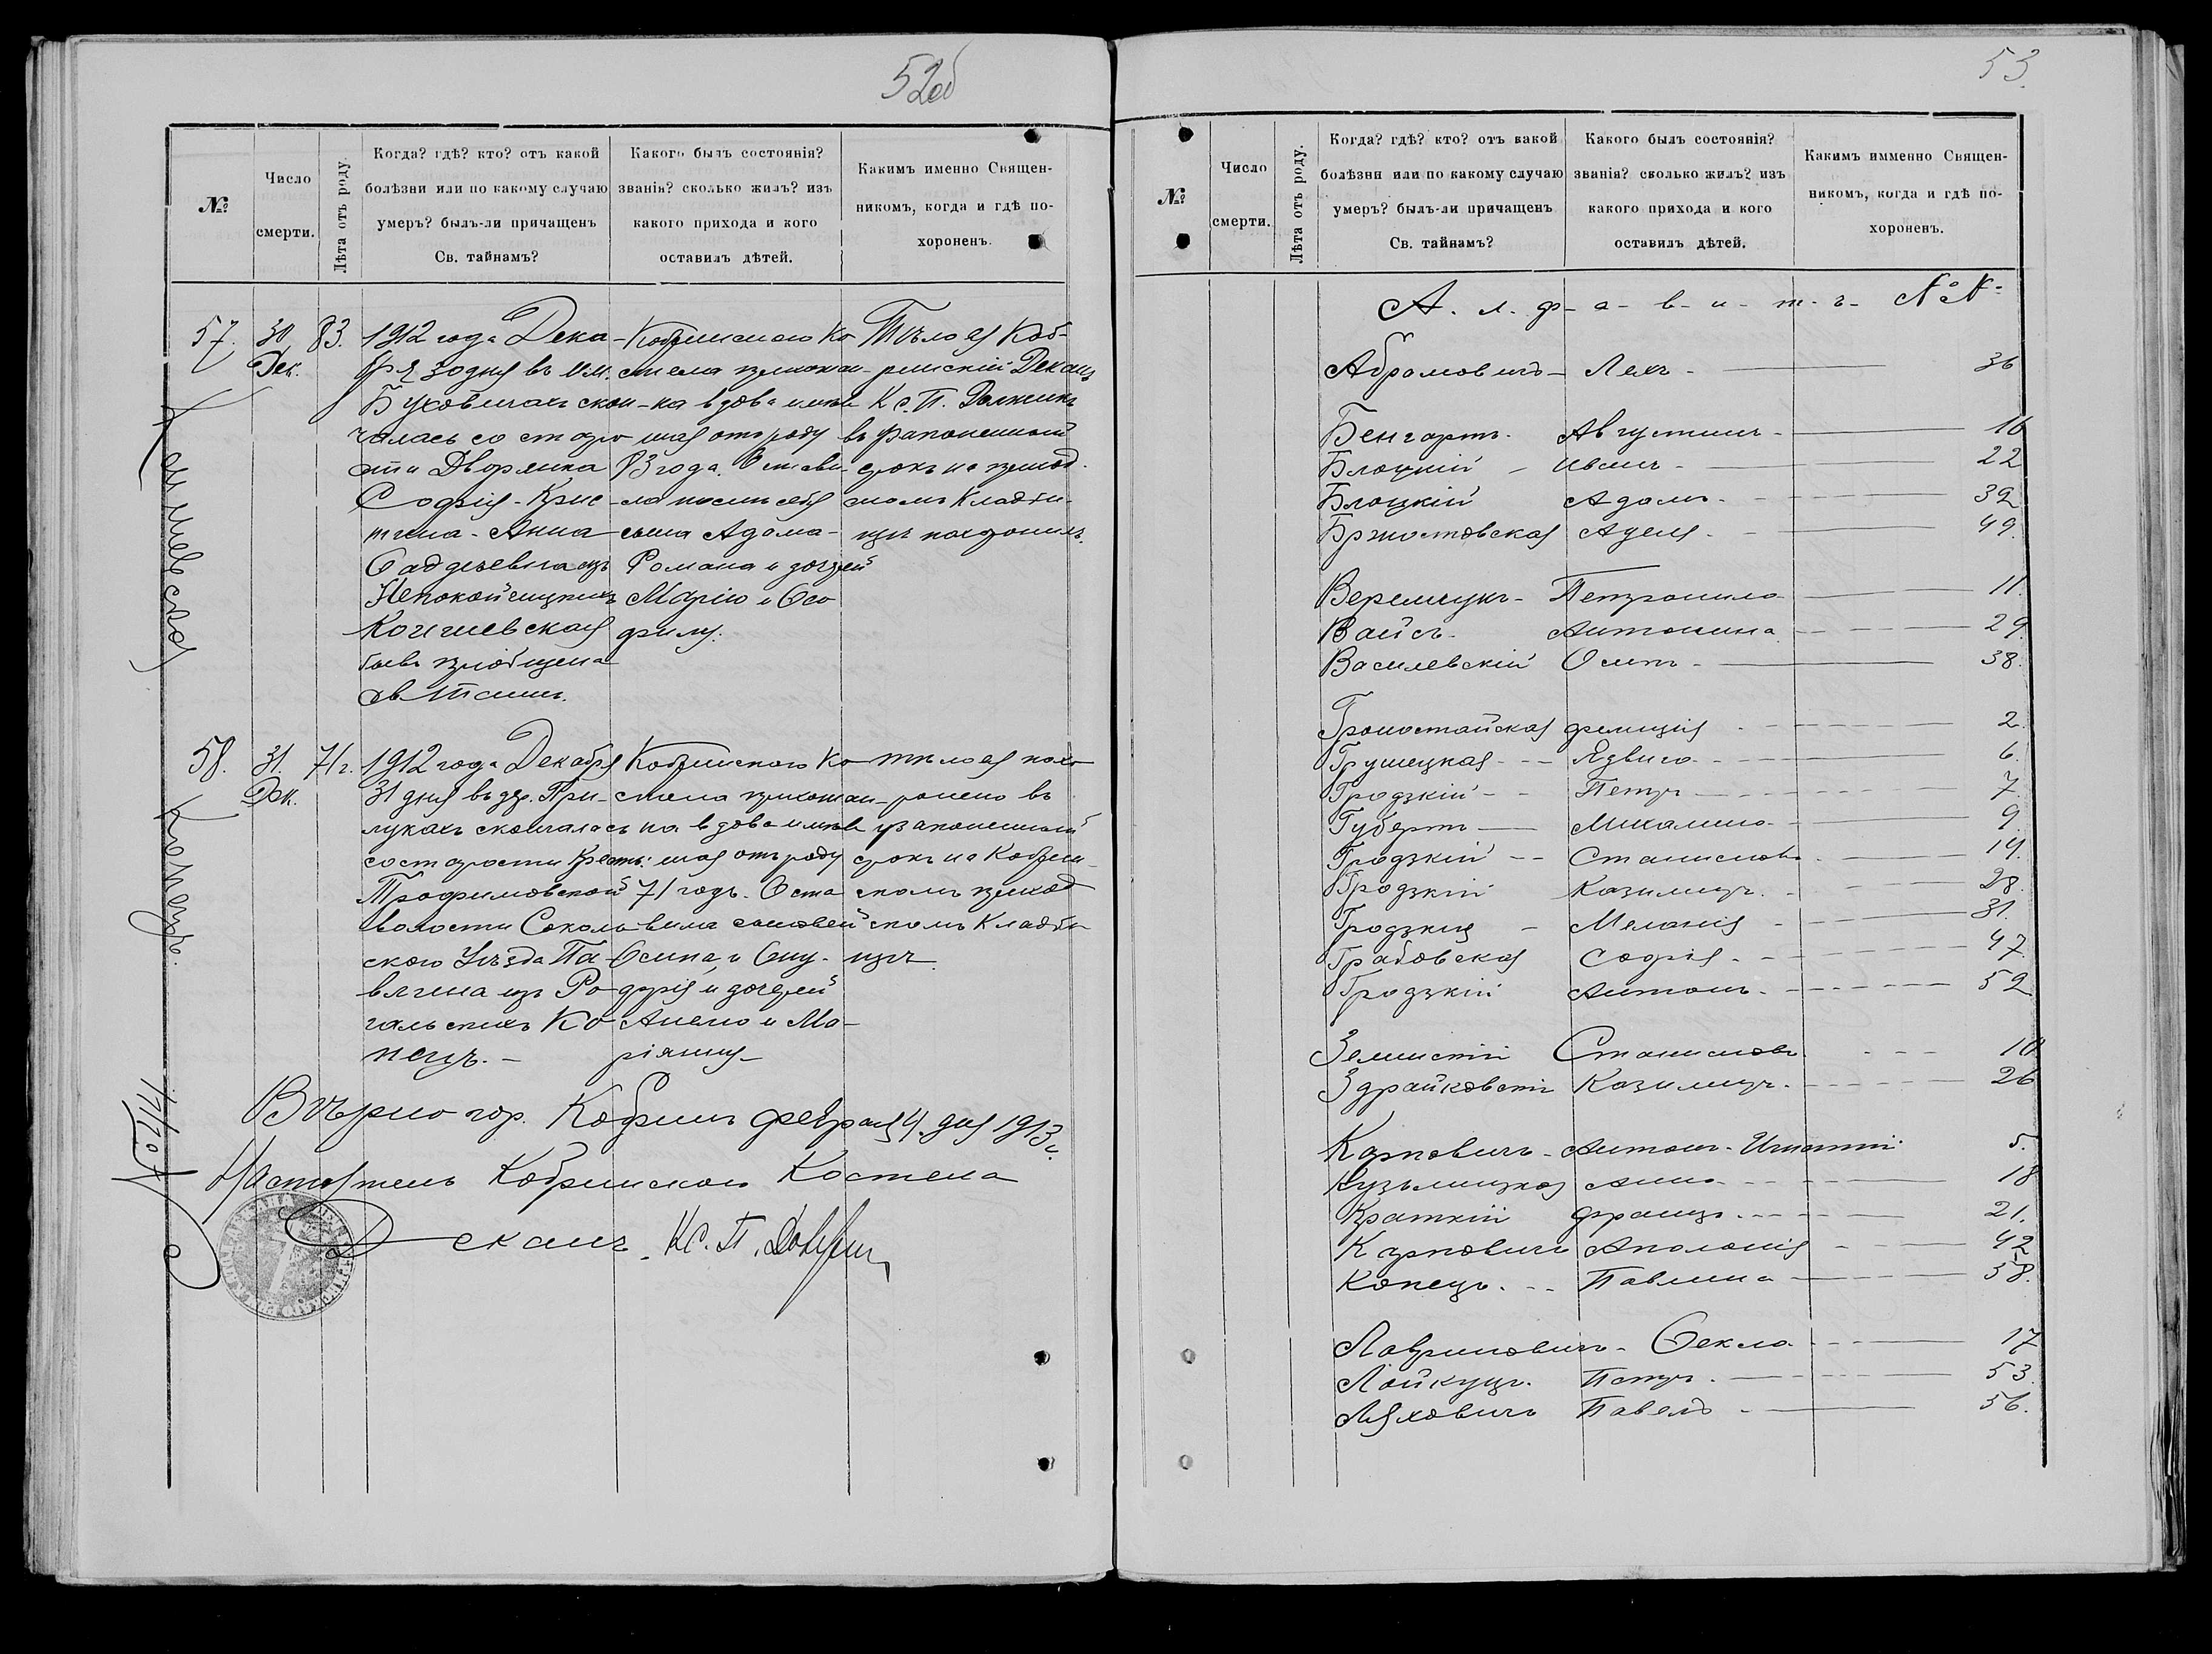 52об
№
Число
смерти.
Лѣта отъ роду.
Когда? гдѣ? кто? отъ какой
болѣзни или по какому случаю
умеръ? былъ-ли причащенъ
Св. тайнамъ?
Какого былъ состоянія?
званія? сколько жилъ? изъ
какого прихода и кого
оставилъ дѣтей.
Какимъ именно Священ-
никомъ, когда и гдѣ по-
хороненъ.
57.
30
Дек.
83.
1912 года Дека-
бря 30 дня въ им.
Буховичахъ скон-
чалась со старо
сти Дворянка
Софія-Крис-
тина-Анна
Фаддѣевна изъ
Непокойчицкихъ
бывъ пріобщена
св Таинъ.
Кобринскаго Ко
стела прихожан-
ка вдова имѣв
шая отъ роду
83 года. Остави-
ла послѣ себя
сына Адама-
Романа и дочерей
Марію и Фео
филу.
Тѣло ея Коб-
ринскій Деканъ
Кс. П.
въ законенный
срокъ на приход.
скомъ кладби-
щѣ похоронилъ.
58.
31.
Дек.
71 г.
1912 года Декабря
31 дня въ дер. При-
лукахъ скончалась
со старости Крест:
Трофимовской
волости Соколь-
скаго Уѣзда Па-
влина изъ Ро-
гальскихъ Ко-
пецъ. -
Кобринскаго Ко
стела прихожан-
ка вдова имѣв
шая отъ роду
71 годъ. Оста
вила сыновей
Осипа, и Ону-
фрія и дочерей
Анелю и Ма-
ріянну
Тѣло ея похо
ронено въ
узаконенный
срокъ на Кобрин-
скомъ приход
скомъ Кладби
щѣ.
Копецъ.
Вѣрно гор. Кобринъ Февраля 4. дня 1913 г.
Настоятель Кобринскаго Костела
Деканъ. Кс. П.
53.
№
Число
смерти.
Лѣта отъ роду.
Когда? гдѣ? кто? отъ какой
болѣзни или по какому случаю
умеръ? былъ-ли причащенъ
Св. тайнамъ?
Какого былъ состоянія?
званія? сколько жилъ? изъ
какого прихода и кого
оставилъ дѣтей.
Какимъ имменно Священ-
никомъ, когда и гдѣ по-
хороненъ.
А. л. ф-а-в-и-т-ъ- №№
Абрамовичъ - Лехъ - 36
Бенгартъ. Августинъ - 16
Блоцкій - Иванъ - 22
Блоцкій Адамъ - 39
Бржостовская Аделя - 49.
Веремчукъ - Петронила 11.
Вайсъ. Антонина 29.
Василевскій Осипъ - 38.
Гроностайская Фелиція 2.
Грушецкая - Ядвига 6.
Гродзкій - Петръ 7.
Губертъ Михалина 9.
Гродзкій - Станиславъ 14.
Гродзкій Казимиръ. 28.
Гродзкая - Меланія 31.
Грабовская Софія. 47.
Гродзкій Антонъ. 52
Станиславъ 10
Казимиръ. 26
Карповичъ - Антонъ - Игнатій 5.
Анна 18
Краткій Францъ. 21.
Карповичъ Аполонія 42
Копецъ. Павлина 58.
Лавриновичъ. Фекла 17
Лойкуцъ. Петръ. 53.
Ляховичъ Павелъ - 56.